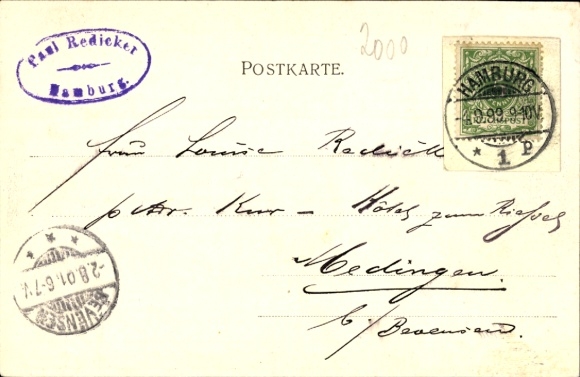 Paul Redicker
Hamburg.
2000
POSTKARTE.
HAMBURG
9.89. 9-10V.
* 1 P
Frau Louise
p Adr. Kur - Hôtel zum
Medingen.
b/ Bevensen.
-2.8.01. 6-7 V.
BEVENSEN